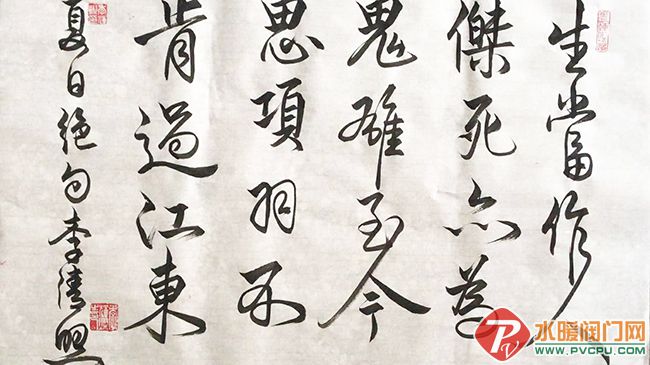 生當作
傑死亦為
鬼雄至今
思項羽不
肯過江東
夏日绝句李清照
水暖阀门网
WWW.PVCPU.COM